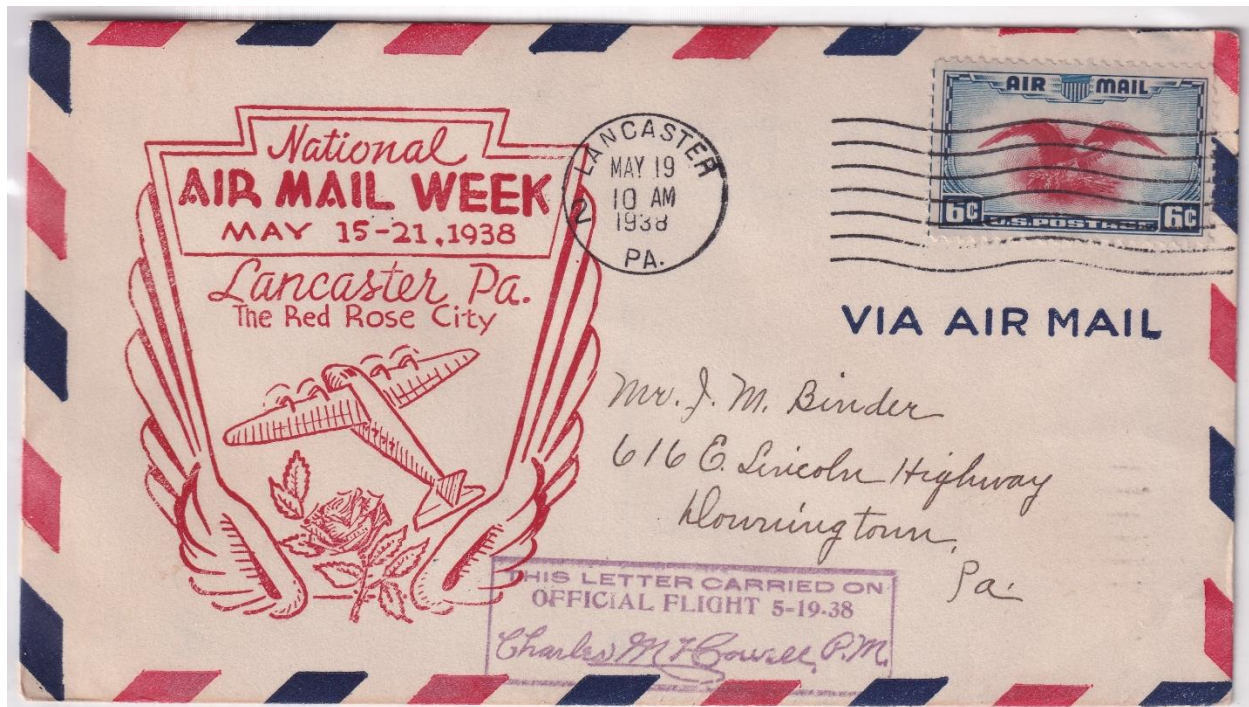 National
AIR MAIL WEEK
MAY 15-21, 1938
Lancaster Pa.
The Red Rose City
LANCASTER
MAY 19
10 AM
1938
2
PA.
AIR MAIL
6¢ U.S. POSTAGE 6¢
VIA AIR MAIL
Mr. J. M. Binder
616 E. Lincoln Highway
Downingtown,
Pa.
THIS LETTER CARRIED ON
OFFICIAL FLIGHT 5-19-38
Charles P.M.